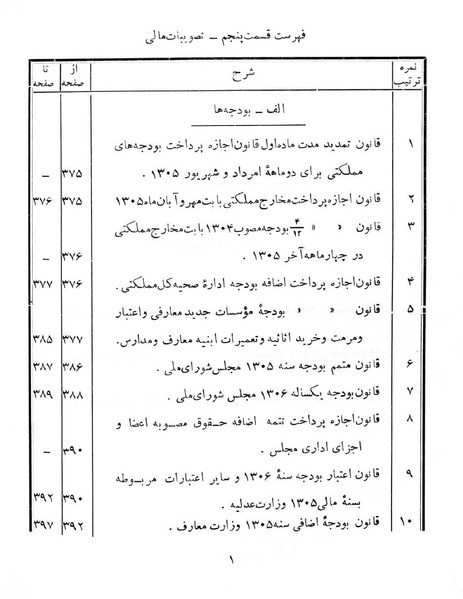 فهرست قسمت پنجم ــ تصویبات مالی
نمره ترتیب | شرح | از صفحه | تا صفحه
الف ــ بودجه‌ها
۱ قانون تمدید مدت ماده اول قانون اجازه پرداخت بودجه‌های
مملکتی برای دو ماهۀ امرداد و شهریور ۱۳۰۵ . ۳۷۵ ــ
۲ قانون اجازه پرداخت مخارج مملکتی بابت مهر و آبان ماه ۱۳۰۵ ۳۷۵ ۳۷۶
۳ قانون » » ۴/۱۲ بودجه مصوب ۱۳۰۴ بابت مخارج مملکتی
در چهار ماهه آخر ۱۳۰۵ . ۳۷۶ ــ
۴ قانون اجازه پرداخت اضافه بودجه ادارۀ صحیه کل مملکتی . ۳۷۶ ۳۷۷
۵ قانون » » بودجۀ مؤسسات جدید معارفی و اعتبار
ومرمت و خرید اثاثیه و تعمیرات ابنیه معارف و مدارس. ۳۷۷ ۳۸۵
۶ قانون متمم بودجه سنه ۱۳۰۵ مجلس شورای ملی . ۳۸۶ ۳۸۷
۷ قانون بودجه یکساله ۱۳۰۶ مجلس شورای ملی . ۳۸۸ ۳۸۹
۸ قانون اجازه پرداخت تتمه اضافه حقوق مصوبه اعضا و
اجزای اداری مجلس . ۳۹۰ ــ
۹ قانون اعتبار بودجه سنۀ ۱۳۰۶ و سایر اعتبارات مربوطه
بسنۀ مالی ۱۳۰۵ وزارت عدلیه . ۳۹۰ ۳۹۲
۱۰ قانون بودجۀ اضافی سنه ۱۳۰۵ وزارت معارف . ۳۹۲ ۳۹۷
۱